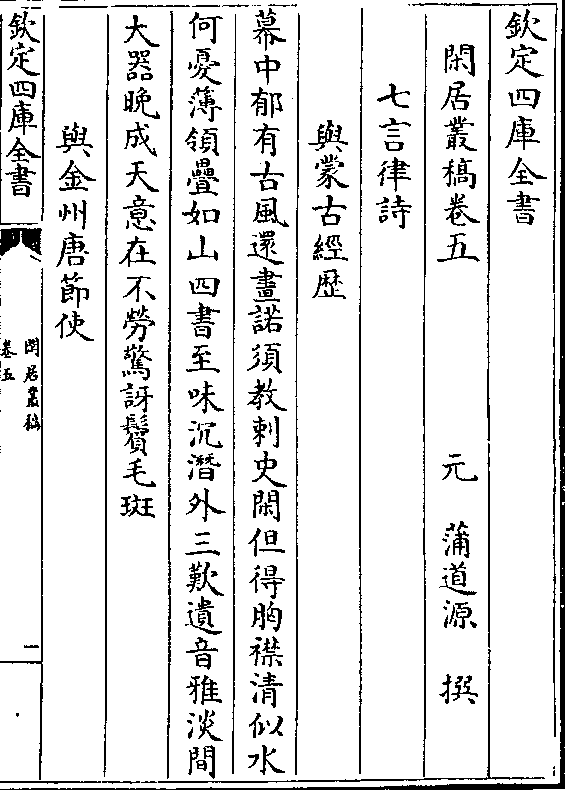 欽定四庫全書
閑居叢稿卷五
元　蒲道源　撰
七言律詩
與蒙古經歴
幕中郁有古風還畫諾須教刺史閑但得胸襟清似水
何憂薄領疊如山四書至味沉潛外三歎遺音雅淡間
大器晚成天意在不勞驚訝鬢毛斑
與金州唐節使
欽定四庫全書
閑居叢稿
卷五
一